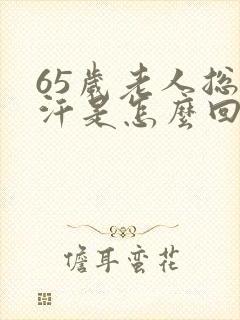 65歲老人总
汗是怎麼回
儋耳蛮花